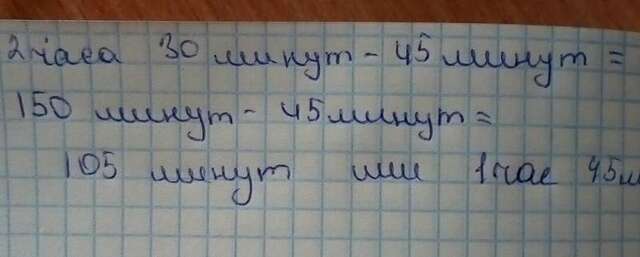 2 часа 30 минут - 45 минут =
150 минут - 45 минут =
105 минут или 1 час 45м